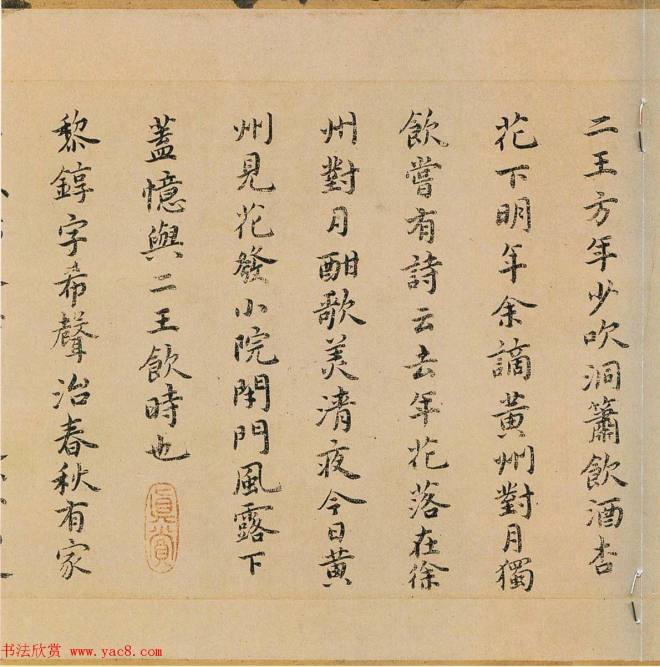 二王方年少吹洞簫飲酒杏
花下明年余謫黄州對月獨
飲嘗有詩云去年花落在徐
州對月酣歌美清夜今日黄
州見花發小院閇門風露下
蓋憶與二王飲時也
真賞
黎錞字希聲治春秋有家
书法欣赏 www.yac8.com